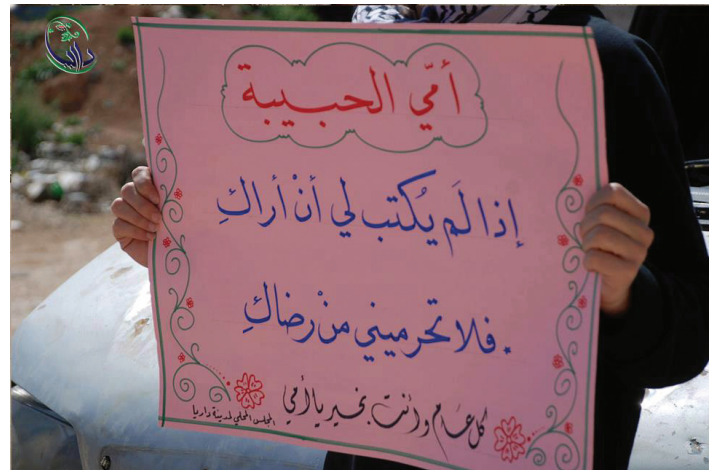 أمّي الحبيبة
إذا لَم يُكتب لي أنْ أراكِ
فلا تحرميني منْ رضاكِ.
كل عام وأنت بخير يا أمي
المجلس المحلي لمدينة داريا
داريا